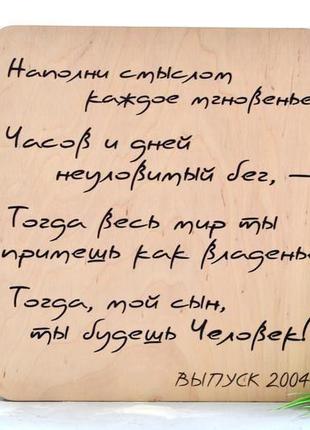 Наполни смыслом
каждое мгновенье
Часов и дней
неуловимый бег, —
Тогда весь мир ты
примешь как владенье
Тогда, мой сын,
ты будешь Человек!
ВЫПУСК 2004